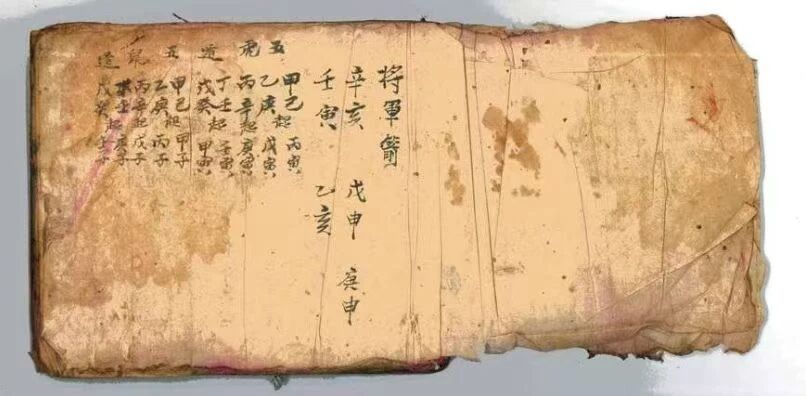 将軍箭
辛亥 戊申 庚申
壬寅 乙亥
五虎遁
甲己起丙寅
乙庚 戊寅
丙辛起庚寅
丁壬起壬寅
戊癸起甲寅
五鼠遁
甲己起甲子
乙庚 丙子
丙辛起戊子
壬起庚子
戊癸起壬子